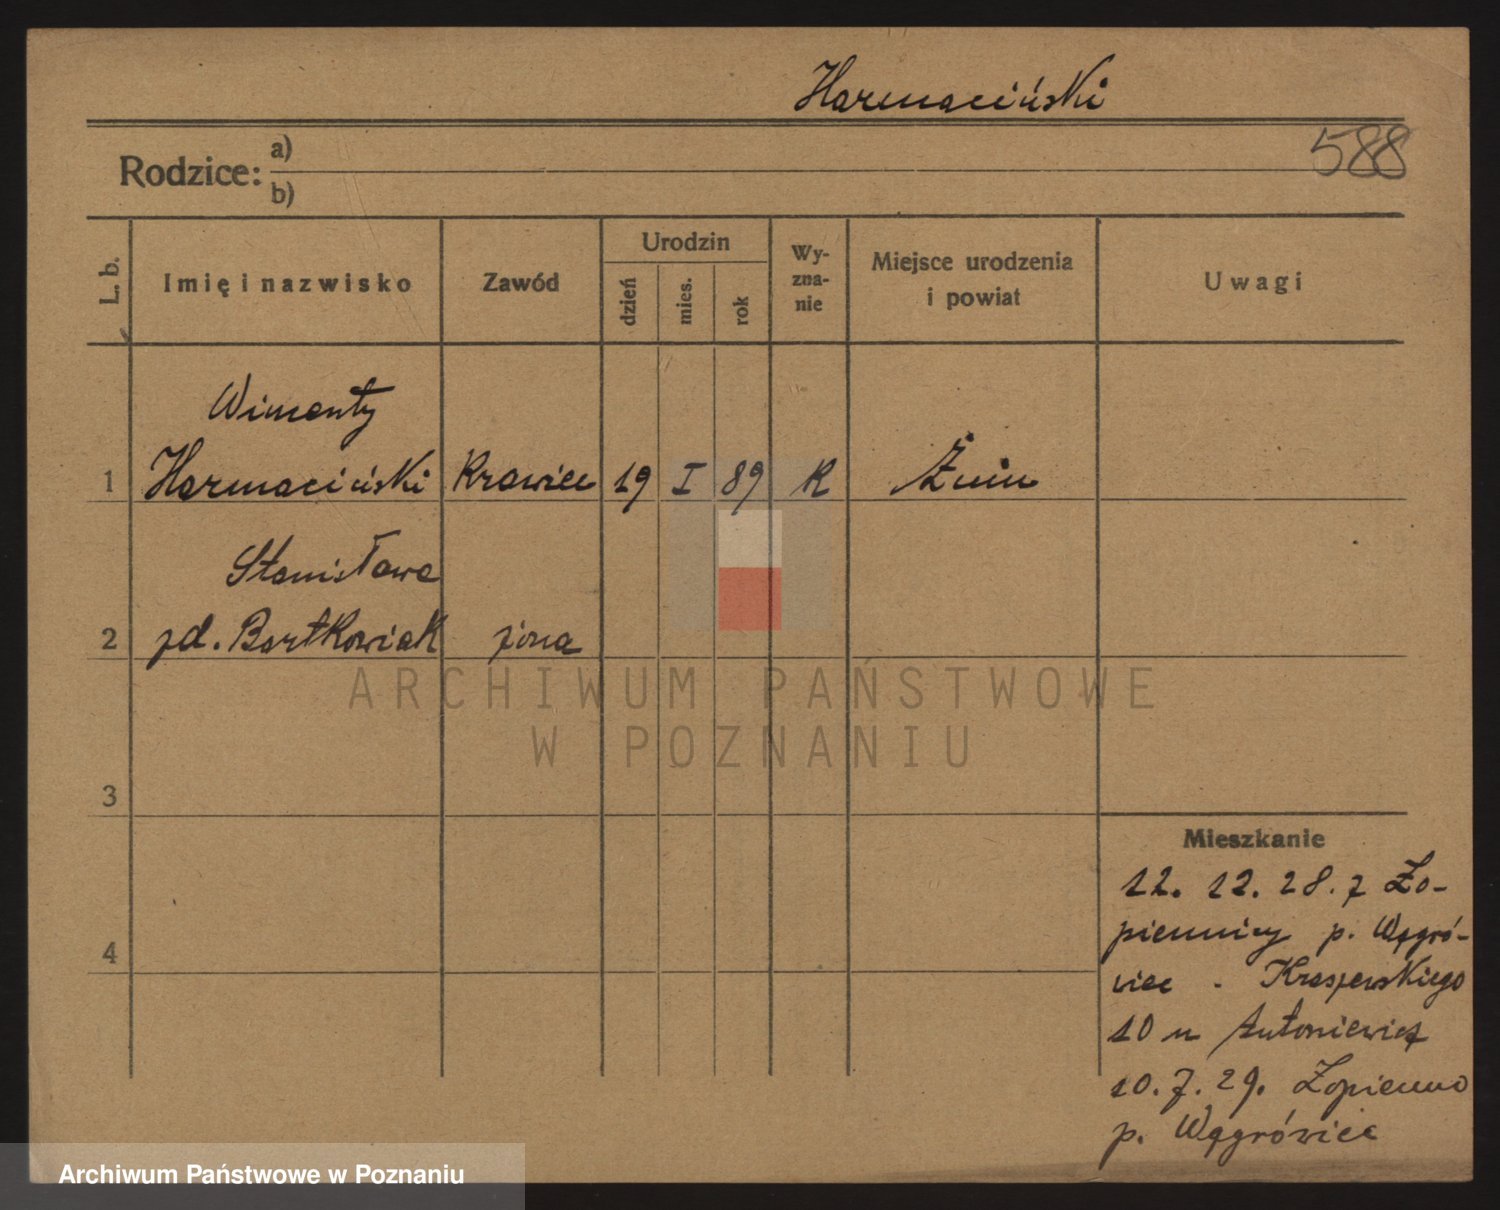 Harmaciński
588
Rodzice: a)
b)
L. b.
Imię i nazwisko
Zawód
Urodzin
dzień
mies.
rok
Wy-
zna-
nie
Miejsce urodzenia
i powiat
Uwagi
Wincenty
1 Harmaciński Krawiec 19 I 89 K Żnin
Stanisława
2 zd. Bartkowiak żona
ARCHIWUM PAŃSTWOWE
W POZNANIU
3
Mieszkanie
12. 12. 28. z Ło-
piennicy p. Wągró-
wiec - Kraszewskiego
4
10 u Antoniewicz
10. 7. 29. Łopienno
p. Wągrówiec
Archiwum Państwowe w Poznaniu